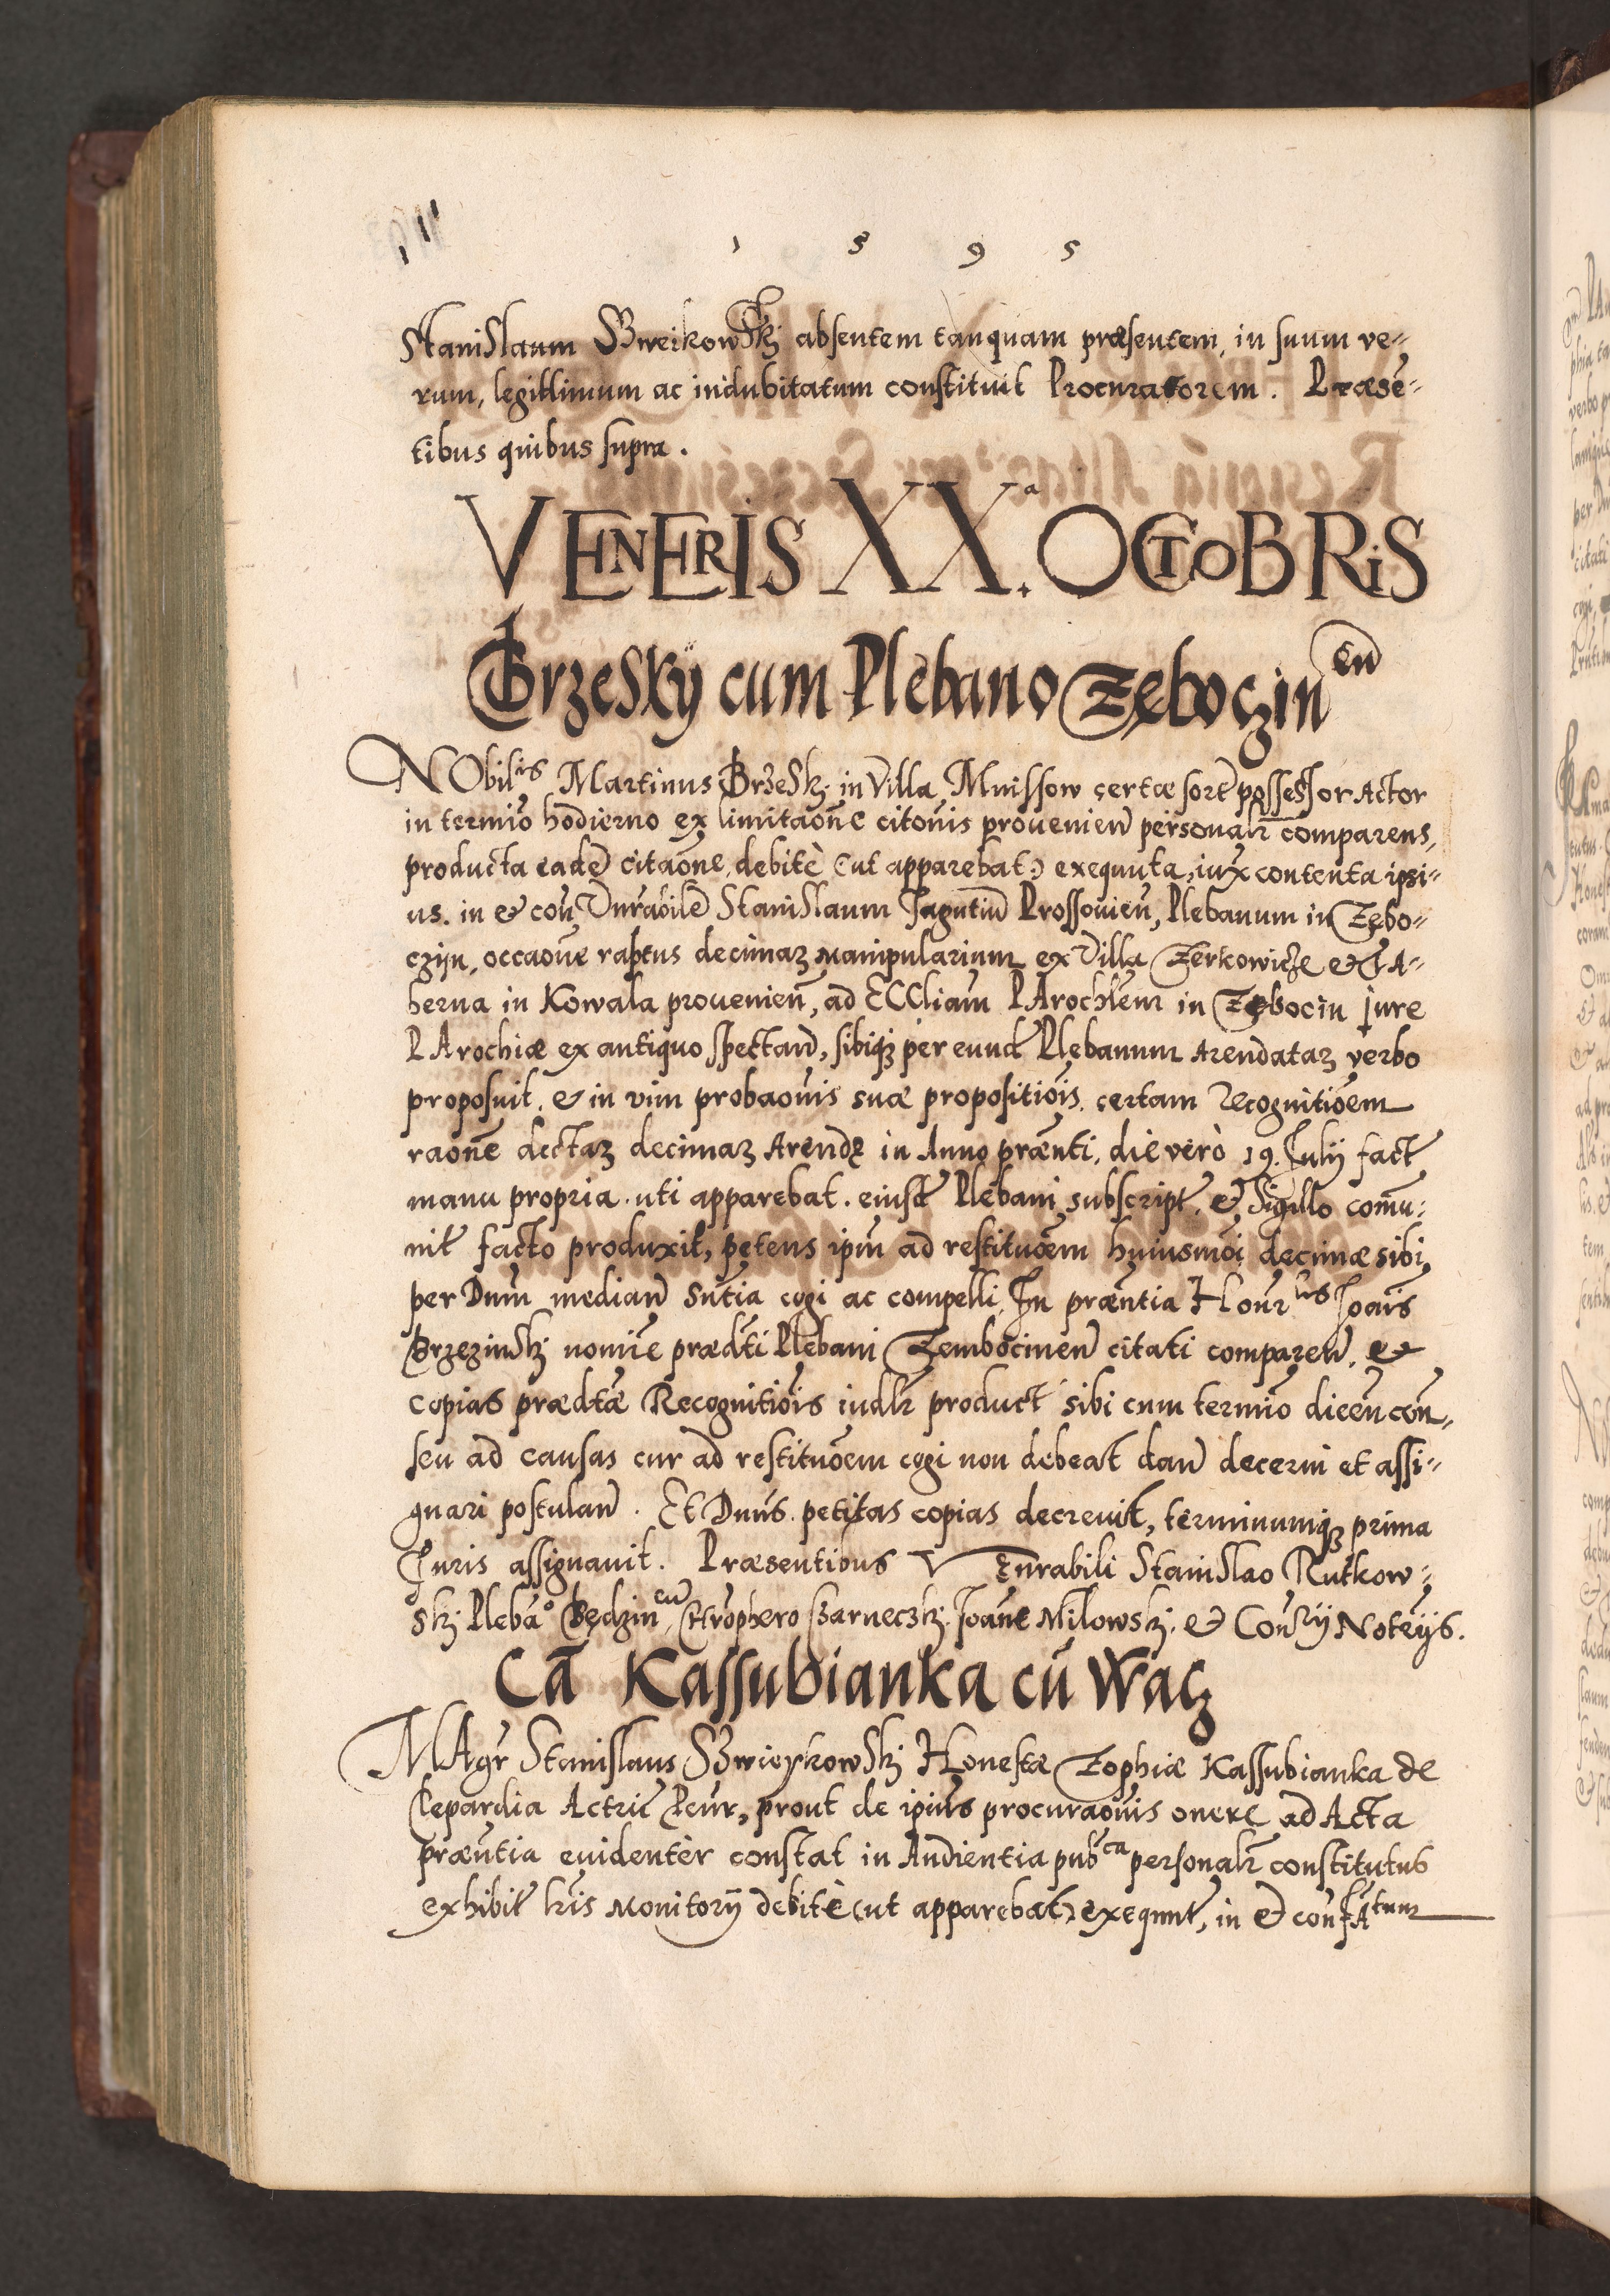 1 5 9 5
Stanislaum Swieikowskj absentem tanquam præsentem, in suum ve-
rum, legittimum ac indubitatum constituit Procuratorem. Præsē-
tibus quibus supra.
VENERIS XX.ª OCTOBRIS
Brzesky cum Plebano Zęboczinen
NObilis Martinus Brzeskj in Villa Mnissow certæ sort possessor Actor
in termīo hodierno ex limitaōne citōnis prouenien personalr comparens,
producta eadē citaōne, debitè (ut apparebat) exequuta, iux contenta ipsi-
us. in et con Vnrabilē Stanislaum Jagutiū Prossouien, Plebanum in Zębo-
czyn, occaōne raptus decimaꝝ manipularium ex Villa Zerkowicze et TA-
berna in Kowala prouenien, ad ECCliam PArochlem in Zębocin Jure
PArochiæ ex antiquo spectan, sibiqꝫ per eund Plebanum Arendataꝝ verbo
proposuit. et in vim probaōnis suæ propositiōis. certam Recognitiōem
raōne dcctaꝝ decimaꝝ Arendę in Anno prænti, die verò 19. Julij fact
manu propria. uti apparebat. eiusd Plebani subscript. et Sigillo comu-
nit facto produxit, petens ipm ad restituōem huiusmōi decimæ sibi
per Dnum median Sntia cogi ac compelli. In præntia Honrlis Joānis
Brzezinskj nomīe prædcti Plebani Zembocinen citati comparen. et
copias prædctæ Recognitiōis iudlr product sibi cum termīo dicen con-
seu ad causas cur ad restituōem cogi non debeat dan decerni et assi-
gnari postulan. Et Dnus. petitas copias decreuit, terminumqꝫ prima
Juris assignauit. Præsentibus Venrabili Stanislao Rutkow-
skj Plebā° Będzinen, Chrophero Czarneczkj. Joāne Milowskj. et Consrij Noterijs.
Cā Kassubianka cū Wącz
MAgr Stanislaus Swieykowskj Honestæ Zophiæ Kassubianka de
Clepardia Actric Pcur, prout de ipius procuraōnis onere ad Acta
præntia euidenter constat in Audientia pubca personalr constitutus
exhibit lris Monitorij debitè (ut apparebat) exequut, in et con FAtum